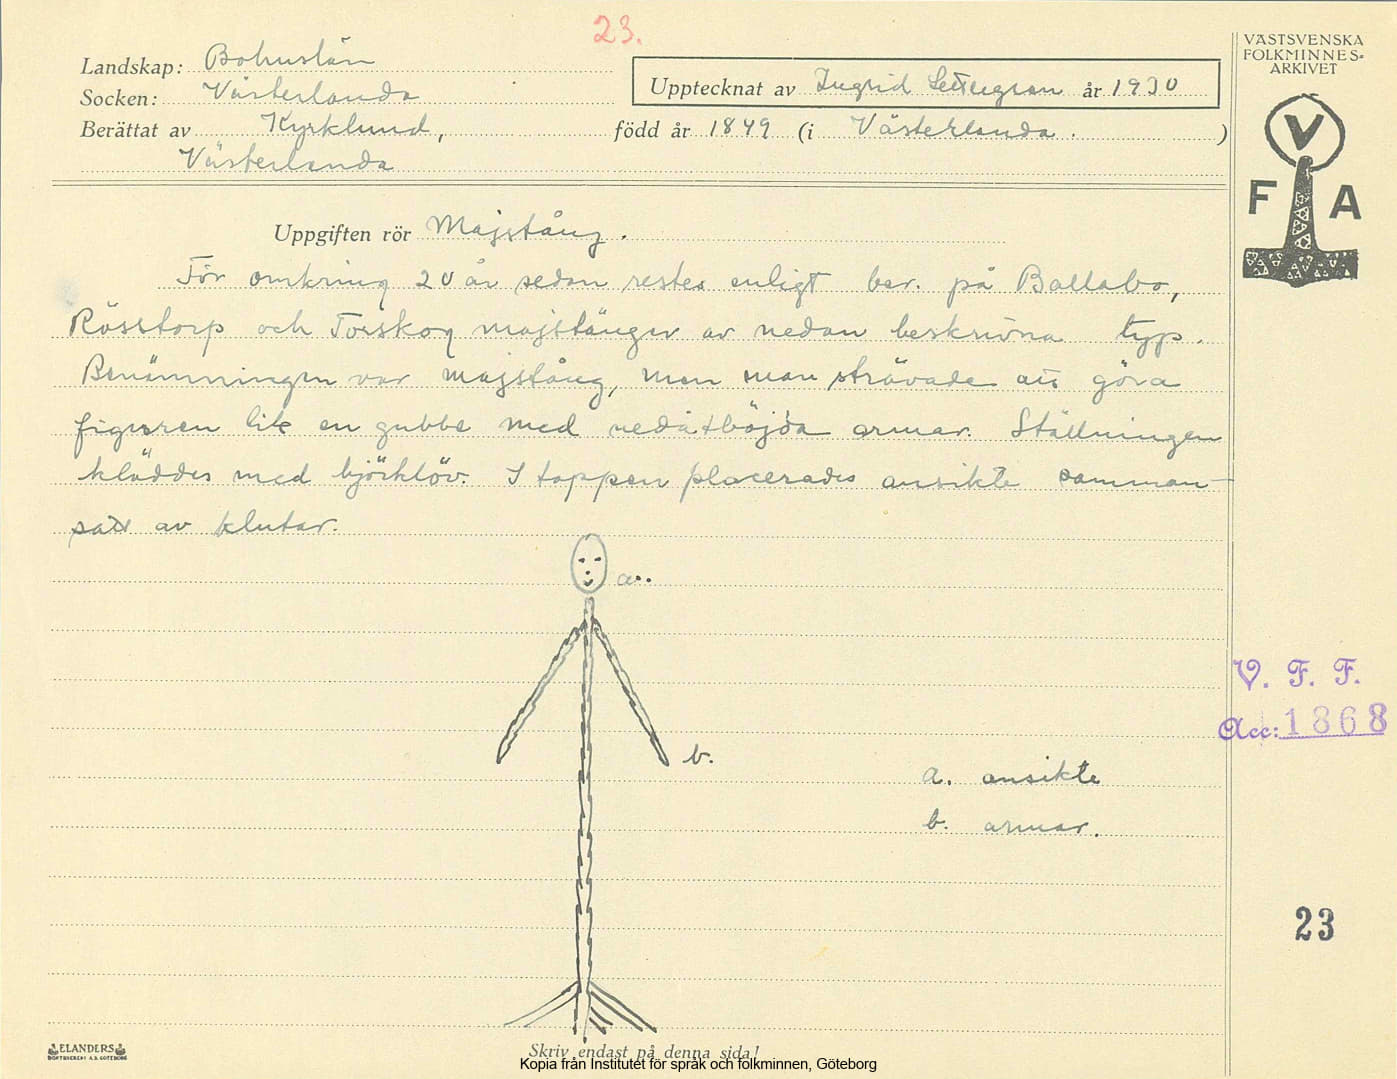 23.
Landskap: Bohuslän
Socken: Västerlanda
Upptecknat av Ingrid år 1930
Berättat av Kyrklund, född år 1849 (i Västerlanda. )
Västerlanda
Uppgiften rör Majstång.
För omkring 20 år sedan restes enligt ber. på Ballabo,
Rösstorp och Torskog majstänger av nedan beskrivna typ.
Benämningen var majstång, men man strävade att göra
figuren lik en gubbe med nedåtböjda armar. Ställningen
kläddes med björklöv. I toppen placerades ansikte samman-
satt av klutar.
a.
b.
a. ansikte
b. armar.
Skriv endast på denna sida!
Kopia från Institutet för språk och folkminnen, Göteborg
ELANDERS
BOKTRYCKERI A.B. GÖTEBORG
VÄSTSVENSKA
FOLKMINNES-
ARKIVET
V
F A
V. F. F.
Acc: 1868
23